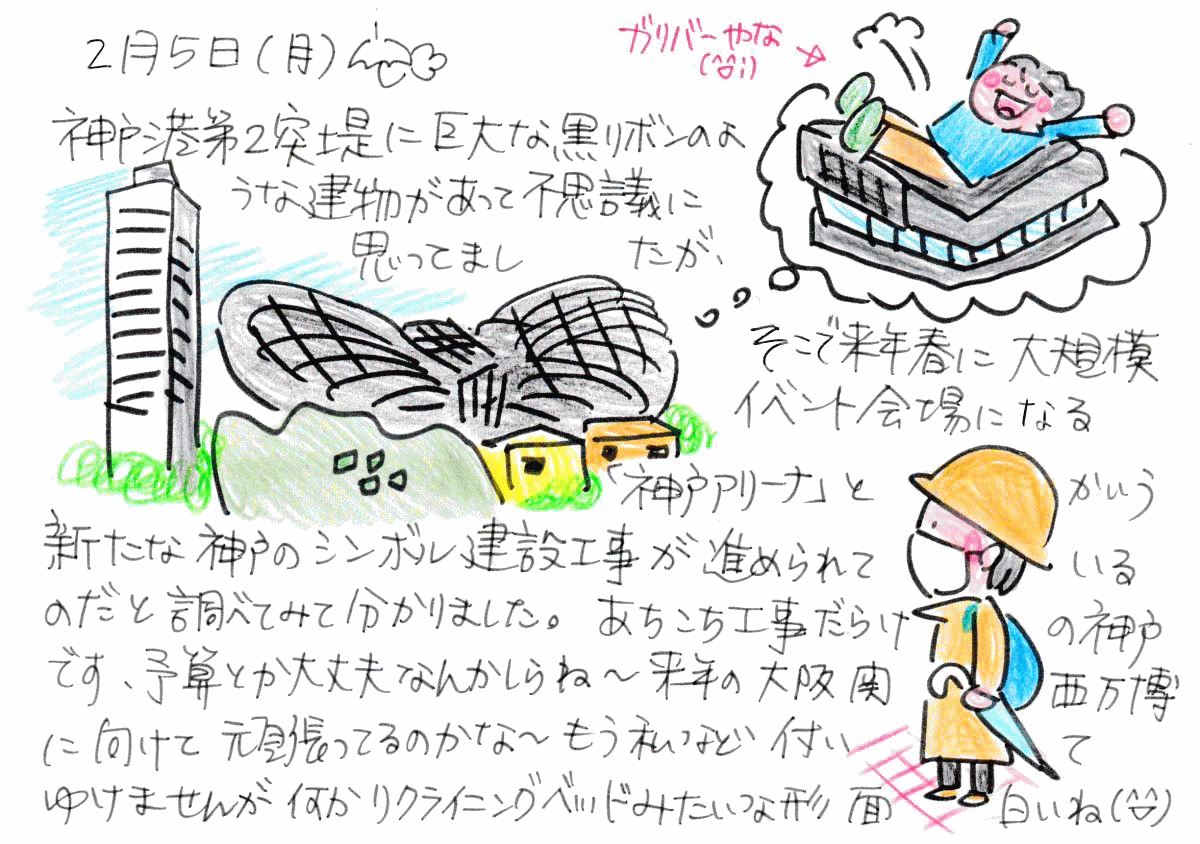 2月5日(月)
ガリバーやな
(^^;)
神戸港第2突堤に巨大な黒リボンのよ
うな建物があって不思議に
思ってましたが、
そこで来年春に大規模
イベント会場になる
「神戸アリーナ」とかいう
新たな神戸のシンボル建設工事が進められている
のだと調べてみて分かりました。あちこち工事だらけの神戸
です、予算とか大丈夫なんかしらね〜来年の大阪関西万博
に向けて頑張ってるのかな〜もう私など付いて
ゆけませんが何かリクライニングベッドみたいな形面白いね(^^)